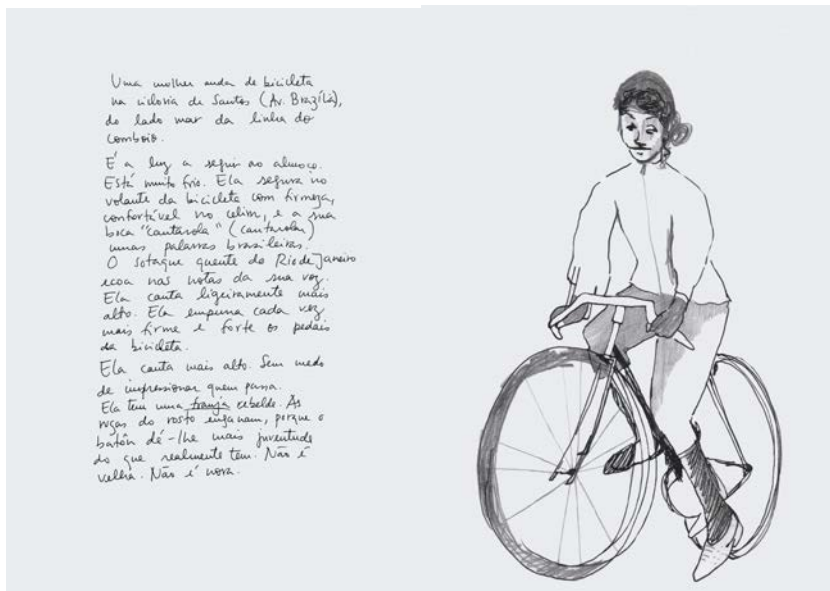 Uma mulher anda de bicicleta
na ciclovia de Santos (Av. Brazília),
do lado mar da linha do
comboio.
É a luz a seguir ao almoço.
Está muito frio. Ela segura no
volante da bicicleta com firmeza,
confortável no celim, e a sua
boca "cantarola" (cantarolar)
umas palavras brasileiras.
O sotaque quente do Rio de Janeiro
ecoa nas notas da sua voz.
Ela canta ligeiramente mais
alto. Ela empurra cada vez
mais firme e forte os pedais
da bicicleta.
Ela canta mais alto. Sem medo
de impressionar quem passa.
Ela tem uma franja rebelde. As
rugas do rosto enganam, porque o
batôn dá-lhe mais juventude
do que realmente tem. Não é
velha. Não é nova.